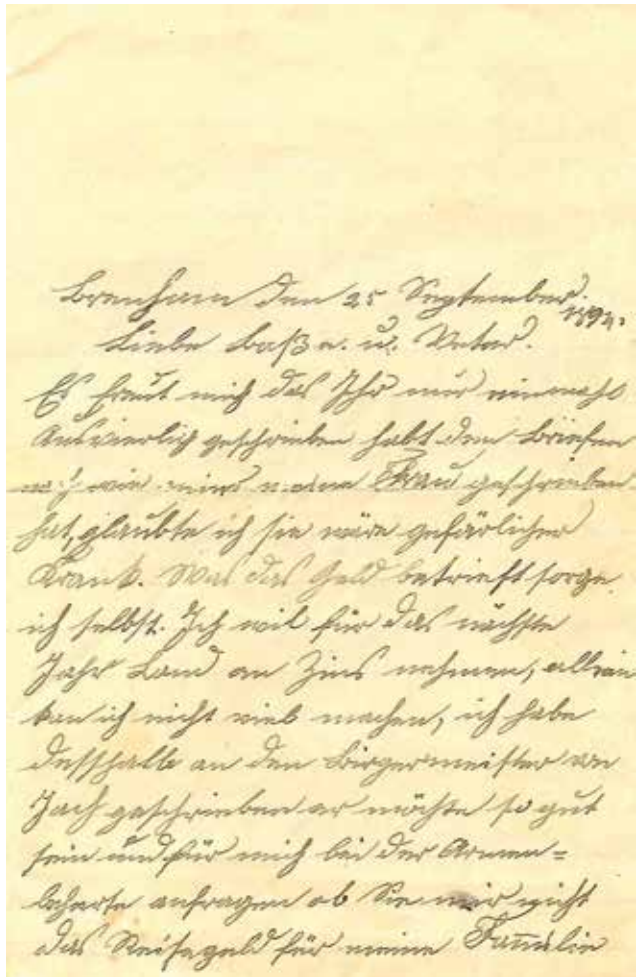 Brenham den 25 September 1894.
Liebe Baßa. u. Vater.
Es freut mich das Ihr mir einmahl
Ausvierlich geschrieben habt den Briefen
nach wie mir meine Frau geschrieben
hat, glaubte ich sie wäre gefärlicher
Krank. Was das Geld betrieft sorge
ich selbst. Ich wil für das nächste
Jahr Land an Zins nehmen, allein
kan ich nicht viel machen, ich habe
desshalb an den Birgermeister von
Jach geschrieben er möchte so gut
sein und für mich bei der Armen=
beharte anfragen ob Sie mir nicht
das Reisegeld für meine Familie